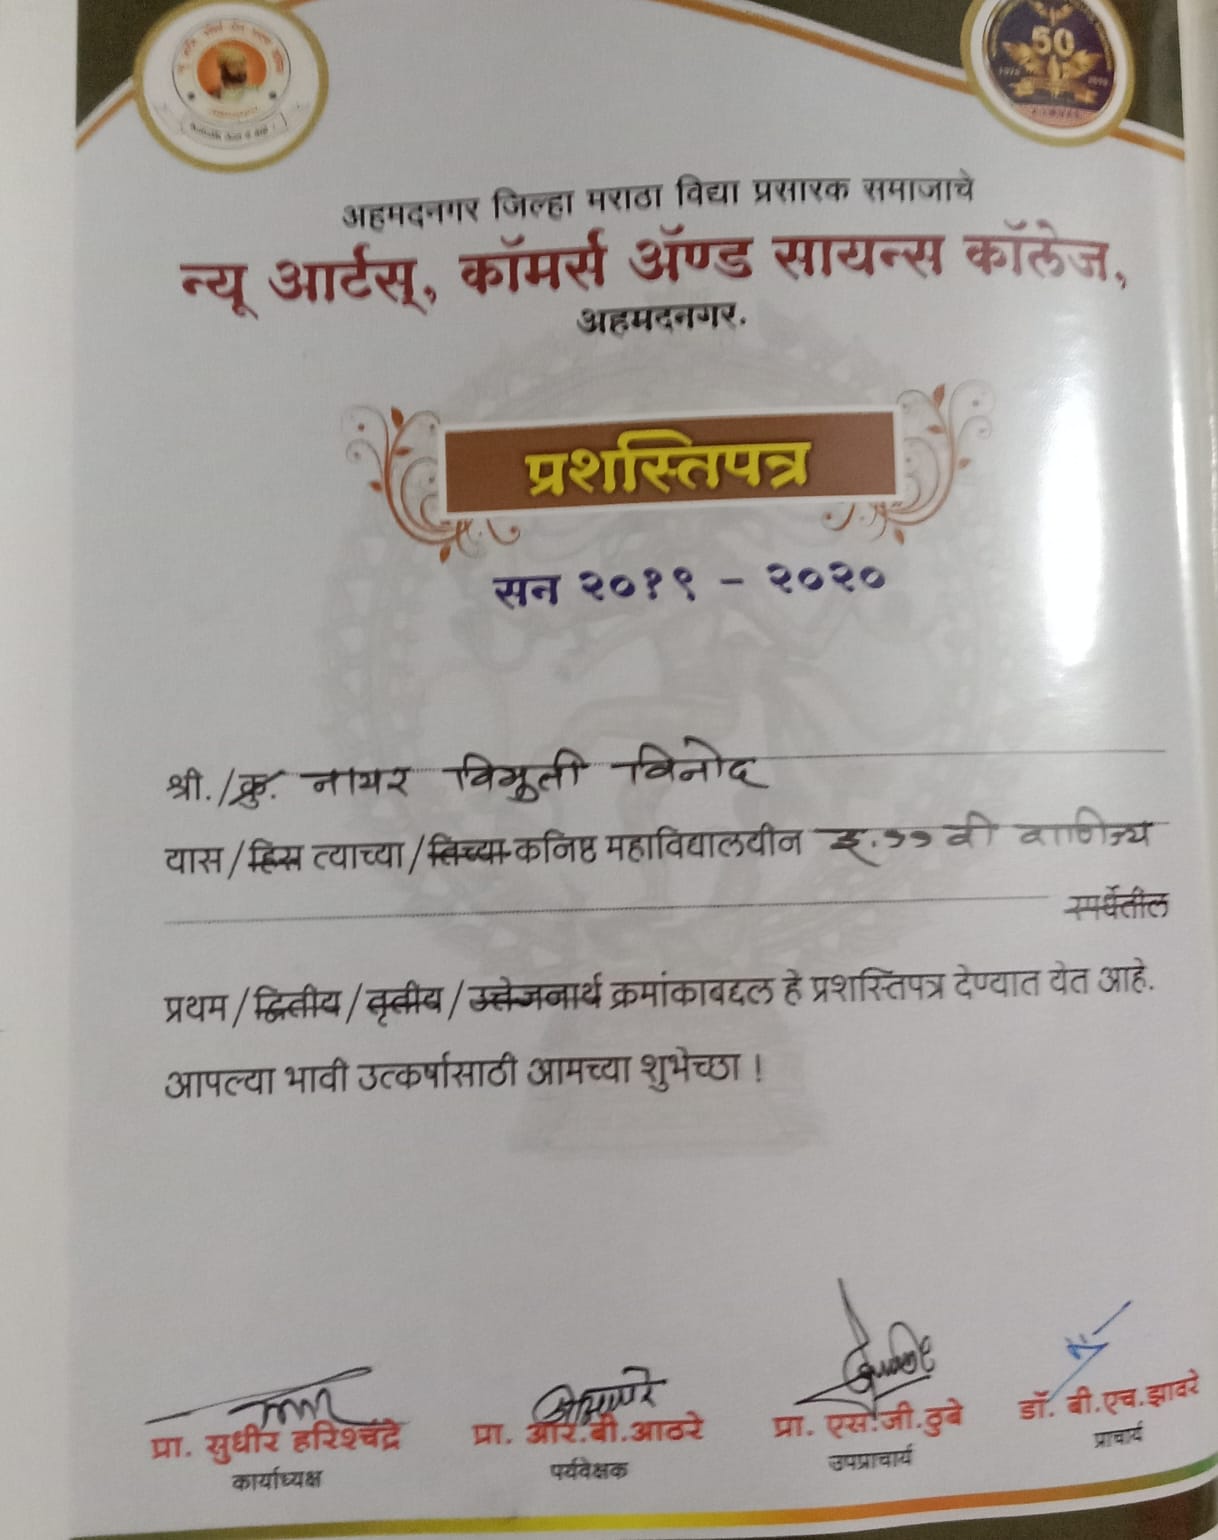 50
अहमदनगर जिल्हा मराठा विद्या प्रसारक समाजाचे
न्यू आर्टस्, कॉमर्स ॲण्ड सायन्स कॉलेज,
अहमदनगर.
प्रशस्तिपत्र
सन २०१९ - २०२०
श्री./कु. नायर विभुती विनोद
यास/हिस त्याच्या/तिच्या कनिष्ठ महाविद्यालयीन इ.११ वी वाणिज्य
स्पर्धेतील
प्रथम/द्वितीय/तृतीय/उत्तेजनार्थ क्रमांकाबद्दल हे प्रशस्तिपत्र देण्यात येत आहे.
आपल्या भावी उत्कर्षासाठी आमच्या शुभेच्छा !
प्रा. सुधीर हरिश्चंद्रे प्रा. आर.बी.आठरे प्रा. एस.जी.ठुबे डॉ. बी.एच.झावरे
कार्याध्यक्ष पर्यवेक्षक उपप्राचार्य प्राचार्य